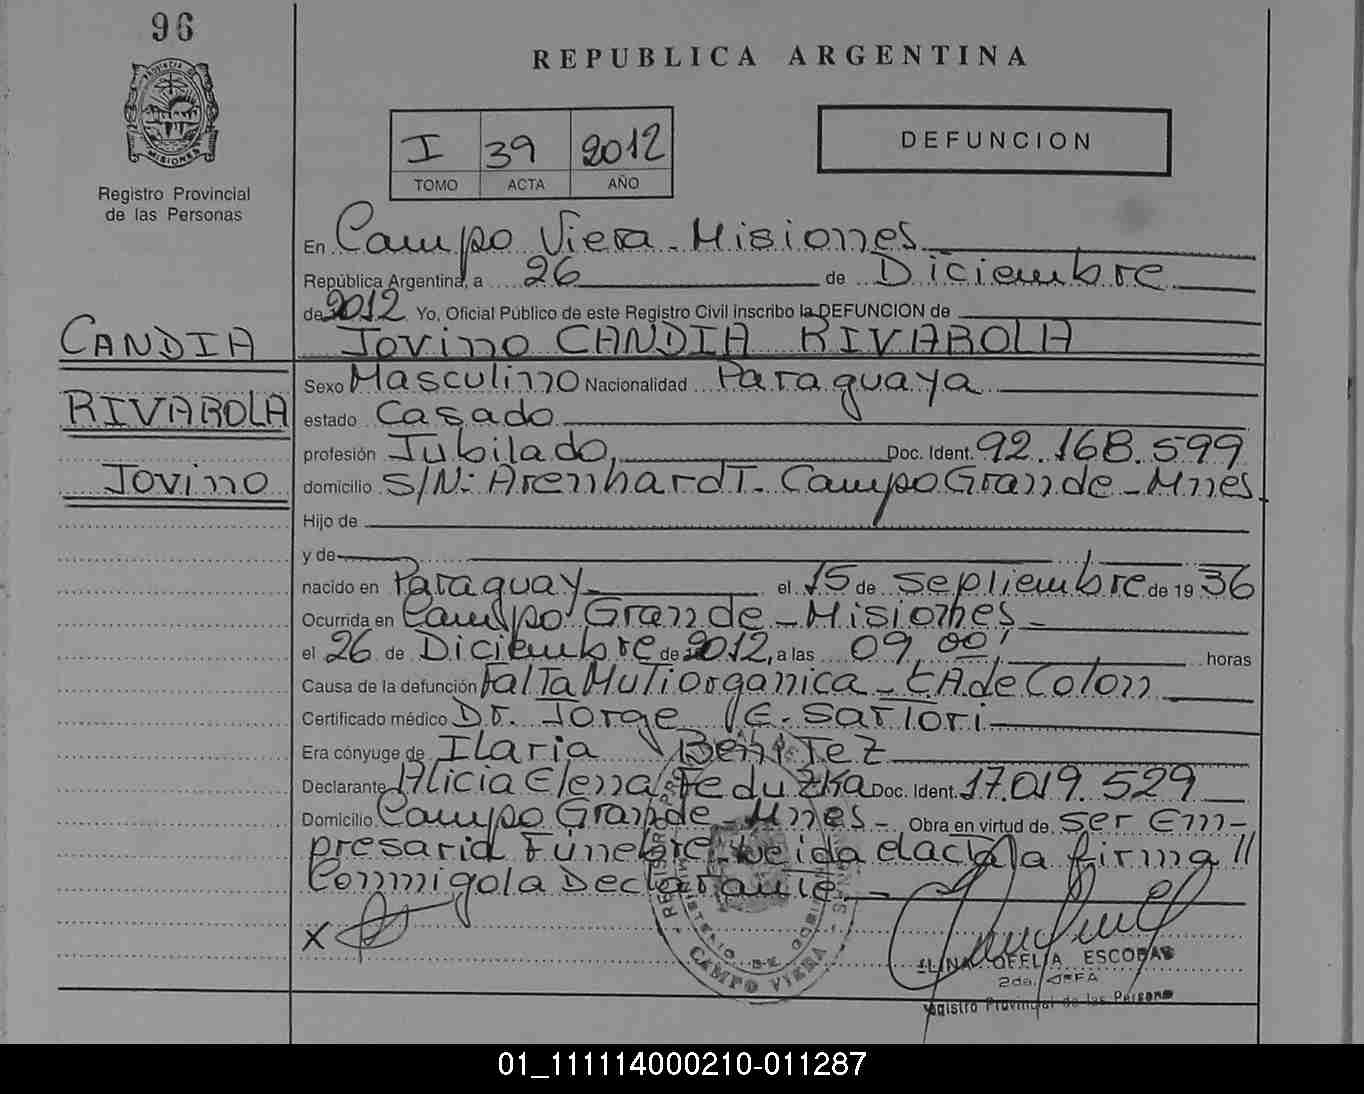 96
REPUBLICA ARGENTINA
PROVINCIA DE MISIONES
Registro Provincial
de las Personas
I 39 2012
TOMO ACTA AÑO
DEFUNCION
En Campo Viera - Misiones
República Argentina, a 26 de Diciembre
de 2012 Yo, Oficial Público de este Registro Civil inscribo la DEFUNCION de
Jovino CANDIA RIVAROLA
CANDIA
RIVAROLA
Jovino
Sexo Masculino Nacionalidad Paraguaya
estado Casado
profesión Jubilado, Doc. Ident. 92.168.599
domicilio S/N: Arenhardt. Campo Grande - Mnes
Hijo de
y de
nacido en Paraguay el 15 de septiembre de 1936
Ocurrida en Campo Grande - Misiones -
el 26 de Diciembre de 2012, a las 09,00' horas
Causa de la defunción Falta Multiorganica - CA de Colon
Certificado médico Dr. Jorge E. Sartori
Era cónyuge de Ilaria Benitez
Declarante Alicia Elena Feduzka Doc. Ident. 17.019.529
Domicilio Campo Grande - Mnes - Obra en virtud de ser Em-
presaria Funebre. Leida el acta la firma //
Conmigo la Declarante -
X
CAMPO VIERA
OFELIA ESCOBAR
2da. JEFA
Registro Provincial de las Personas
01_111114000210-011287